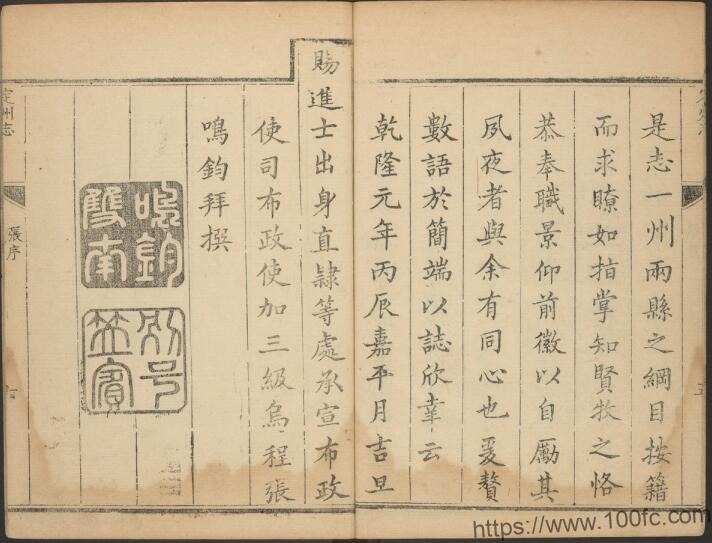 是志一州兩縣之綱目按籍
而求瞭如指掌知賢牧之恪
恭奉職景仰前徽以自勵其
夙夜者與余有同心也爰贅
數語於簡端以誌欣幸云
乾隆元年丙辰嘉平月吉旦
賜進士出身直隸等處承宣布政
使司布政使加三級烏程張
鳴鈞拜撰
鳴鈞
雙南
別号
笠賓
定州志
張序
https://www.100fc.com